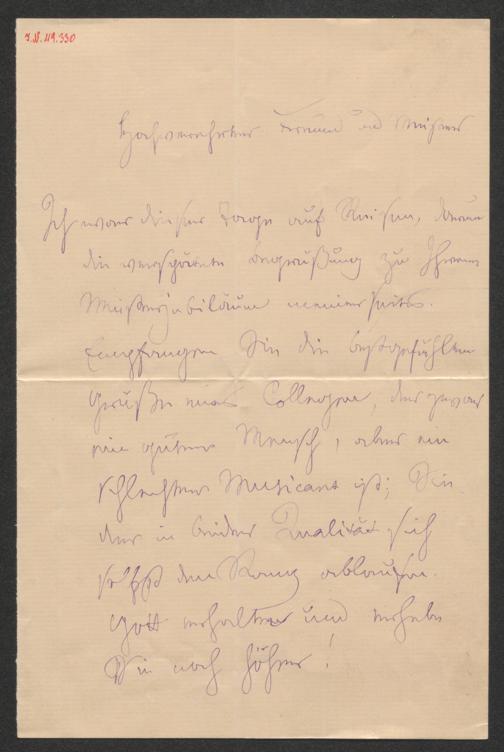 J.N. 119.330
Hochverehrter Freund und Meister
Ich war dieser Tage auf Reisen, darum
die verspätete Begrüßung zu Ihrem
Meisterjubiläum meinerseits.
Empfangen Sie die bestgefühlten
Grüße eines Collegen, der zwar
ein guter Mensch, aber ein
schlechter Musicant ist; Sie
der in beider Qualität sich
selbst den Rang ablaufen.
Gott erhalte und erhebe
Sie noch höher!